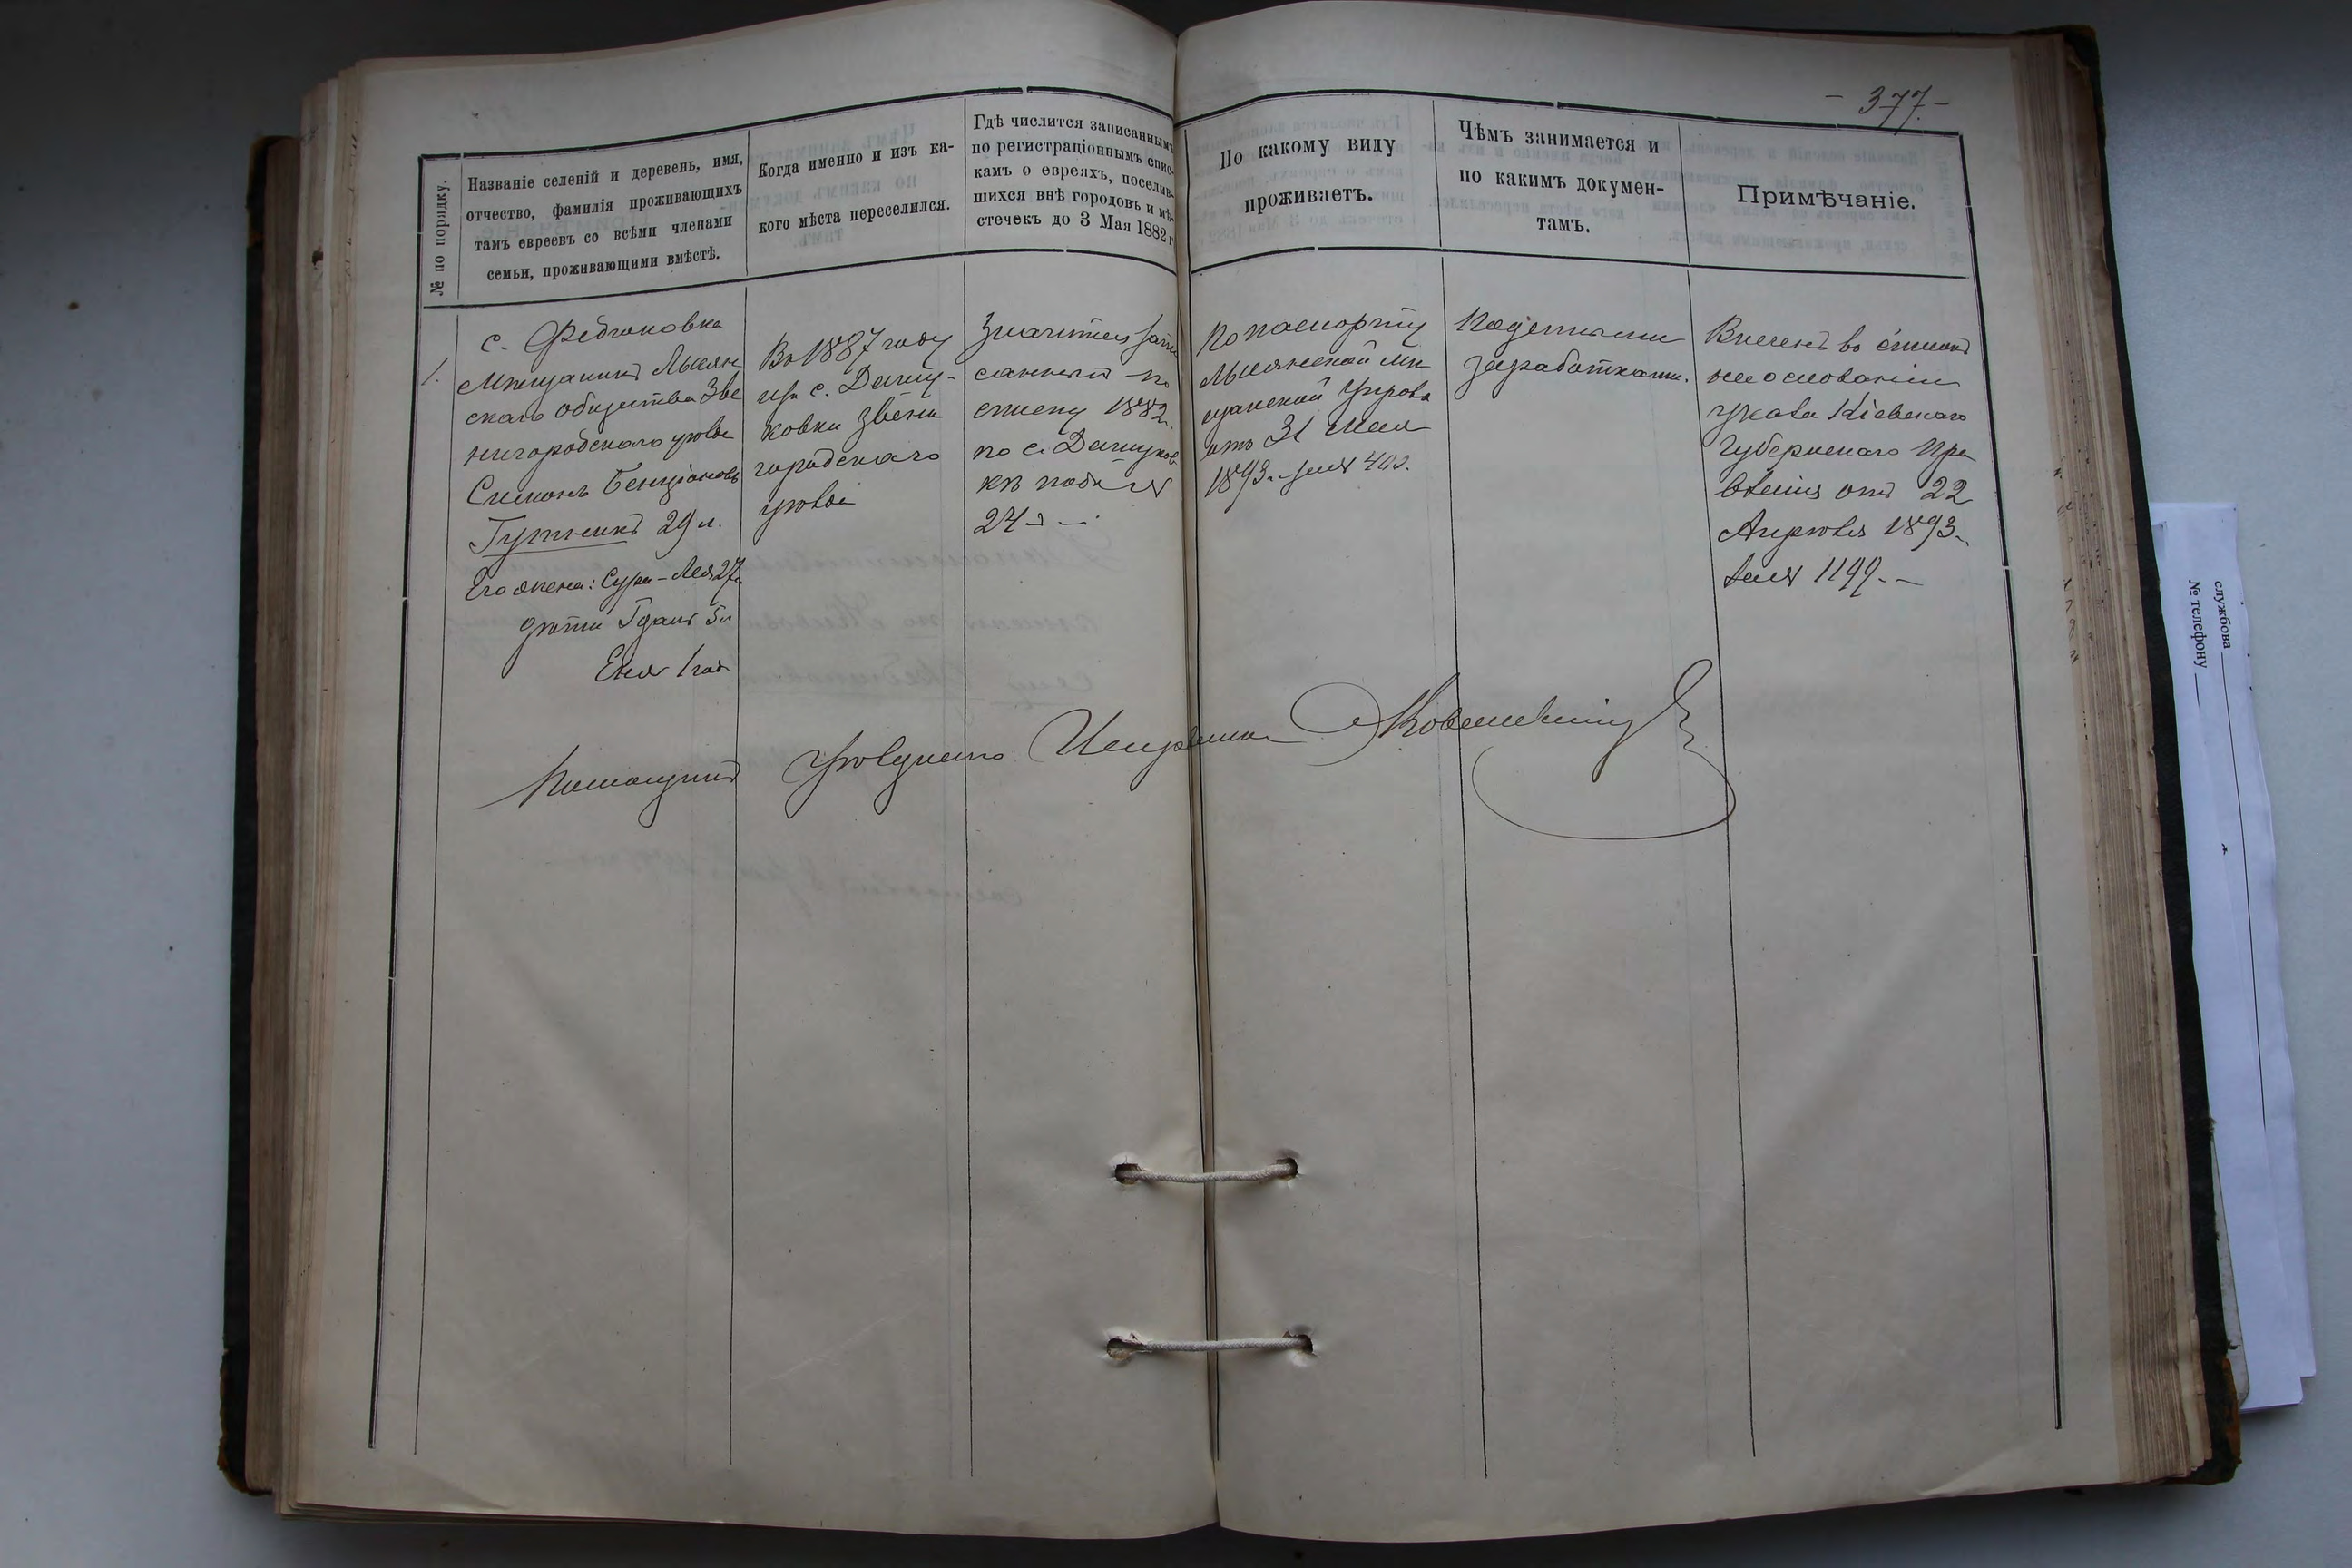 - 377. -
№ по порядку.
Названіе селеній и деревень, имя,
отчество, фамилія проживающихъ
тамъ евреевъ со всѣми членами
семьи, проживающими вмѣстѣ.
Когда именно и изъ ка-
кого мѣста переселился.
Гдѣ числится записаннымъ
по регистраціоннымъ спис-
камъ о евреяхъ, поселив-
шихся внѣ городовъ и мѣ-
стечекъ до 3 Мая 1882 г
По какому виду
проживаетъ.
Чѣмъ занимается и
по какимъ докумен-
тамъ.
Примѣчаніе.
1.
с. Федюковка
Мѣщанинъ Лысян
скаго общества Зве
нигородского уѣзда
Симонъ Бенціоновъ
Гутникъ 29 л.
Его жена: Сура-Лея 27 л.
дѣти Гдаля 5 л
Еня 1 год
Въ 1887 году
изъ с. Дашу-
ковки Звени
городскаго
уѣзда
Значится запи
саннымъ по
списку 1882.
по с. Дашуков
кѣ подъ №
24 -
По паспорту
Лысянской мѣ
щанской Управы
отъ 31 Мая
1893. за №
Поденными
заработками.
Внесенъ въ списокъ
на основаніи
указа Кіевскаго
Губернскаго Пра
вленія отъ 22
Апрѣля 1893.
за № 1199. -
Помощникъ Уѣзднаго Исправника
службова
№ телефону